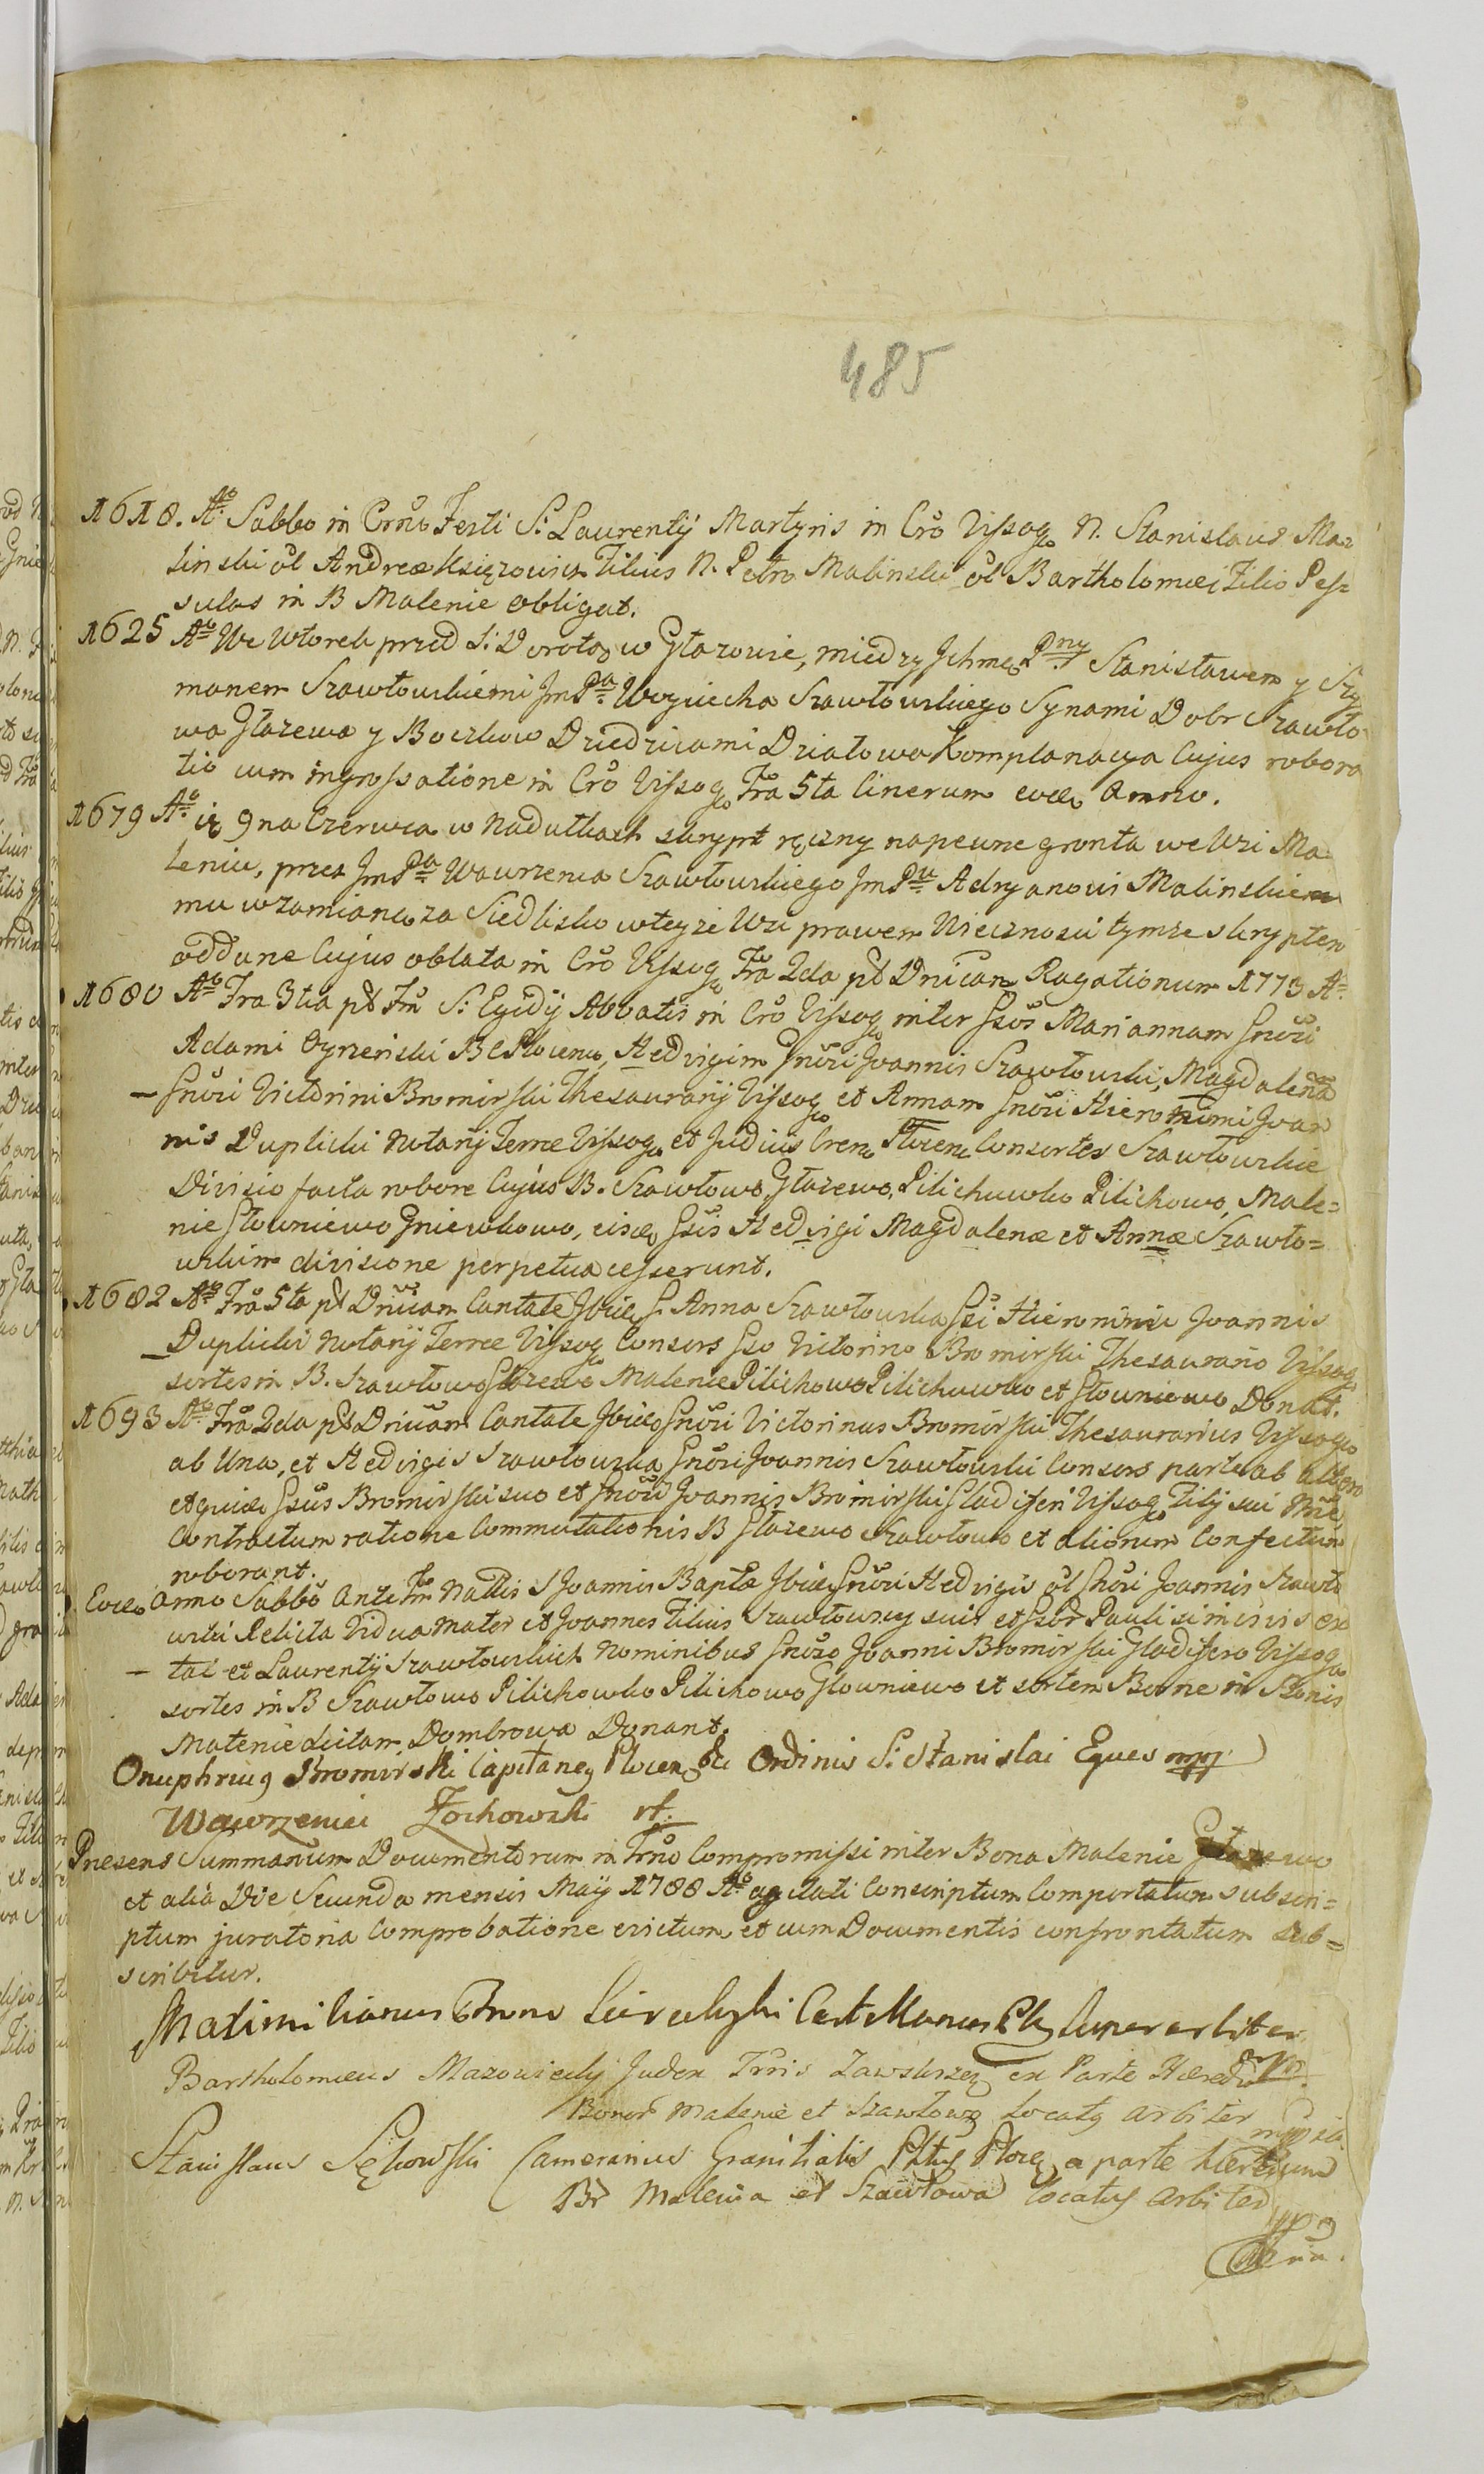 485
1618. Aō Sabbo in Crōno Festi S: Laurentij Martyris in Crō Vissog N. Stanislaus Ma=
linski ol Andreæ Filius N. Petro Malinski ol Bartholomæi Filio Pes=
sulas in B Malenie obligat.
1625 Aō We Wtorek przed S: Dorotą w Głazowie, miedzy Ichmę Pny Stanisławem y Szy
monem Szawłowskiemi Jm Pa Woyciecha Szawłowskiego Synami Dobr Szawło
wa Głazewa y Boczkow Dziedzicami Działowa Komplanacya Cujus robora
tio cum ingrossatione in Crō Vissog Fra 5ta Cinerum eodo Anno.
1679 Aō 9na Czerwca w Nadułkach skrypt ręczny na pewne gronta we Wsi Ma
leniu, przez Jm Pa Wawrzenca Szawłowskiego Jm Pu Adryanowi Malinskie
mu w zamianę za Siedlisko wteyże Wsi prawem Wiecznosci tymże skryptem
oddane Cujus oblata in Crō Vissog Fra 2da pt Dnicam Rogationum 1773 A=
1680 Aō Fra 3tia pt Fm S: Egidij Abbatis in Crō Vissog inter Gsos Mariannam Gnōri
Adami Ozrzeński B C Plocens, Hedvigim Gnōri Joannis Szawłowski, Magdalena
– Gnōri Victorini Bromirski Thesaurarij Vissog et Annam Gnōri Hieronimi Joan
nis Duplicki Notarij Terræ Vissog et Judicis Cren Plocens Consortes Szawłowskie
Divisio facta robore Cujus B. Szawłowo, Głazewo, Pilichowko Pilichowo, Male=
nie Głowniewo Gniewkowo, eisdo Gsis Hedvigi Magdalenæ et Annæ Szawło=
wskim divisione perpetua cesserunt.
1682 Aō Fra 5ta pt Dnicam Cantate Ibide G. Anna Szawłowska Gsi Hieronimi Joannis
– Duplicki Notarij Terræ Vissog Consors Gso Victorino Bromirski Thesaurario Vissog
sortes in B. Szawłowo Głazewo Malenie Pilichowo Pilichowko et Głowniewo Donat.
1693 Aō Fra 2da pt Dnicam Cantate Ibide Gnōri Victorinus Bromirski Thesaurarius Vissog
ab Una, et Hedvigis Szawłowska Gnōri Joannis Szawłowski Consors parte ab altera
et quidē Gsus Bromirski suo et Gnōri Joannis Bromirski Gladiferi Vissog Filij sui Nne
Contractum ratione Commutationis B Głazewo Szawłowo et aliorum Confectum
roborant.
Eodo Anno Sabbo Ante Fm Natlis S Joannis Bapta Ibide Gnōri Hedvigis ol Gnōri Joannis Szawło
wski Relicta Vidua Mater et Joannes Filius Szawłowscy suis et Gsor Pauli sinioris
– tal et Laurentij Szawłowskich Nominibus Gnōso Joanni Bromirski Gladifero Vissog
sortes in B Szawłowo Pilichowko Pilichowo Głowniewo et sortem Bonæ in Bonis
Malenie dictam Dombrowa Donant.
Onuphrius Bromirski Capitaneus Plocen Ordinis S: Stanislai Eques mpp
Wawrzeniec Zochowski rt.
Præsens Summarium Documentorum in Trno Compromissi inter Bona Malenie Głazewo
et alia Die Secunda mensis Maij 1788 Aō agitati Conscriptum Comportatum subscri=
ptum juratoria Comprobatione evictum, et cum Documentis confrontatum sub=
scribitur.
Maximilianus Bruno Castellanus superarbiter
Bartholomæus Mazowiecki Judex Trris Zawskrzen ex Parte Hæredum
Bonor Malenie et Szawłowo Locatus Arbiter mppria
Stanislaus Sękowski Camerarius Granitialis Pltus Plocen a parte hæredum
Br Malenia et Szawłowa locatus Arbiter
mppria.